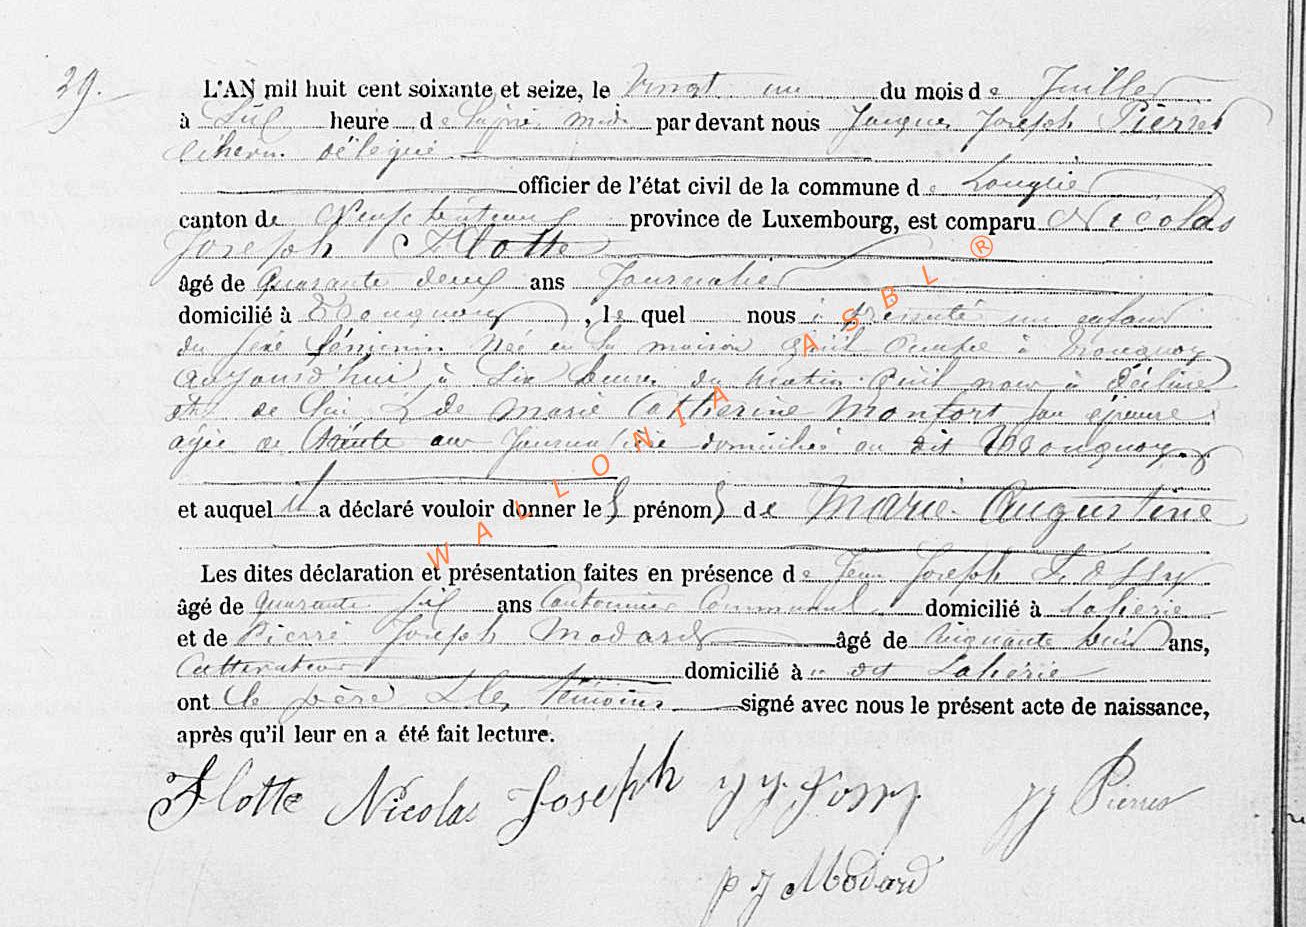 29.
L'AN mil huit cent soixante et seize, le Vingt un du mois de Juillet
à Six heure de l'après midi par devant nous Jacques Joseph Pierret
Echevin délégué
officier de l'état civil de la commune de Longlier
canton de Neufchâteau province de Luxembourg, est comparu Nicolas
Joseph Flotte
âgé de quarante deux ans Journalier
domicilié à Tronquoy, le quel nous à présenté un enfant
du sexe féminin Née en la maison qu'il occupe à Tronquoy
aujourd'hui à Six heures du Matin qu'il nous à déclaré
être de lui & de Marie Catherine Monfort son épouse
agée de trente ans Journalière domiciliée au dit Tronquoy
et auquel il a déclaré vouloir donner les prénoms de Marie Augustine
Les dites déclaration et présentation faites en présence de Jean Joseph
âgé de quarante six ans Cantonnier Communal domicilié à Lahérie
et de Pierre Joseph Modard âgé de Cinquante huit ans,
Cultivateur domicilié à dit Lahérie
ont le père & les témoins signé avec nous le présent acte de naissance,
après qu'il leur en a été fait lecture.
Flotte Nicolas Joseph J J Pierret
p J Modard
WALLONIA ASBL ®